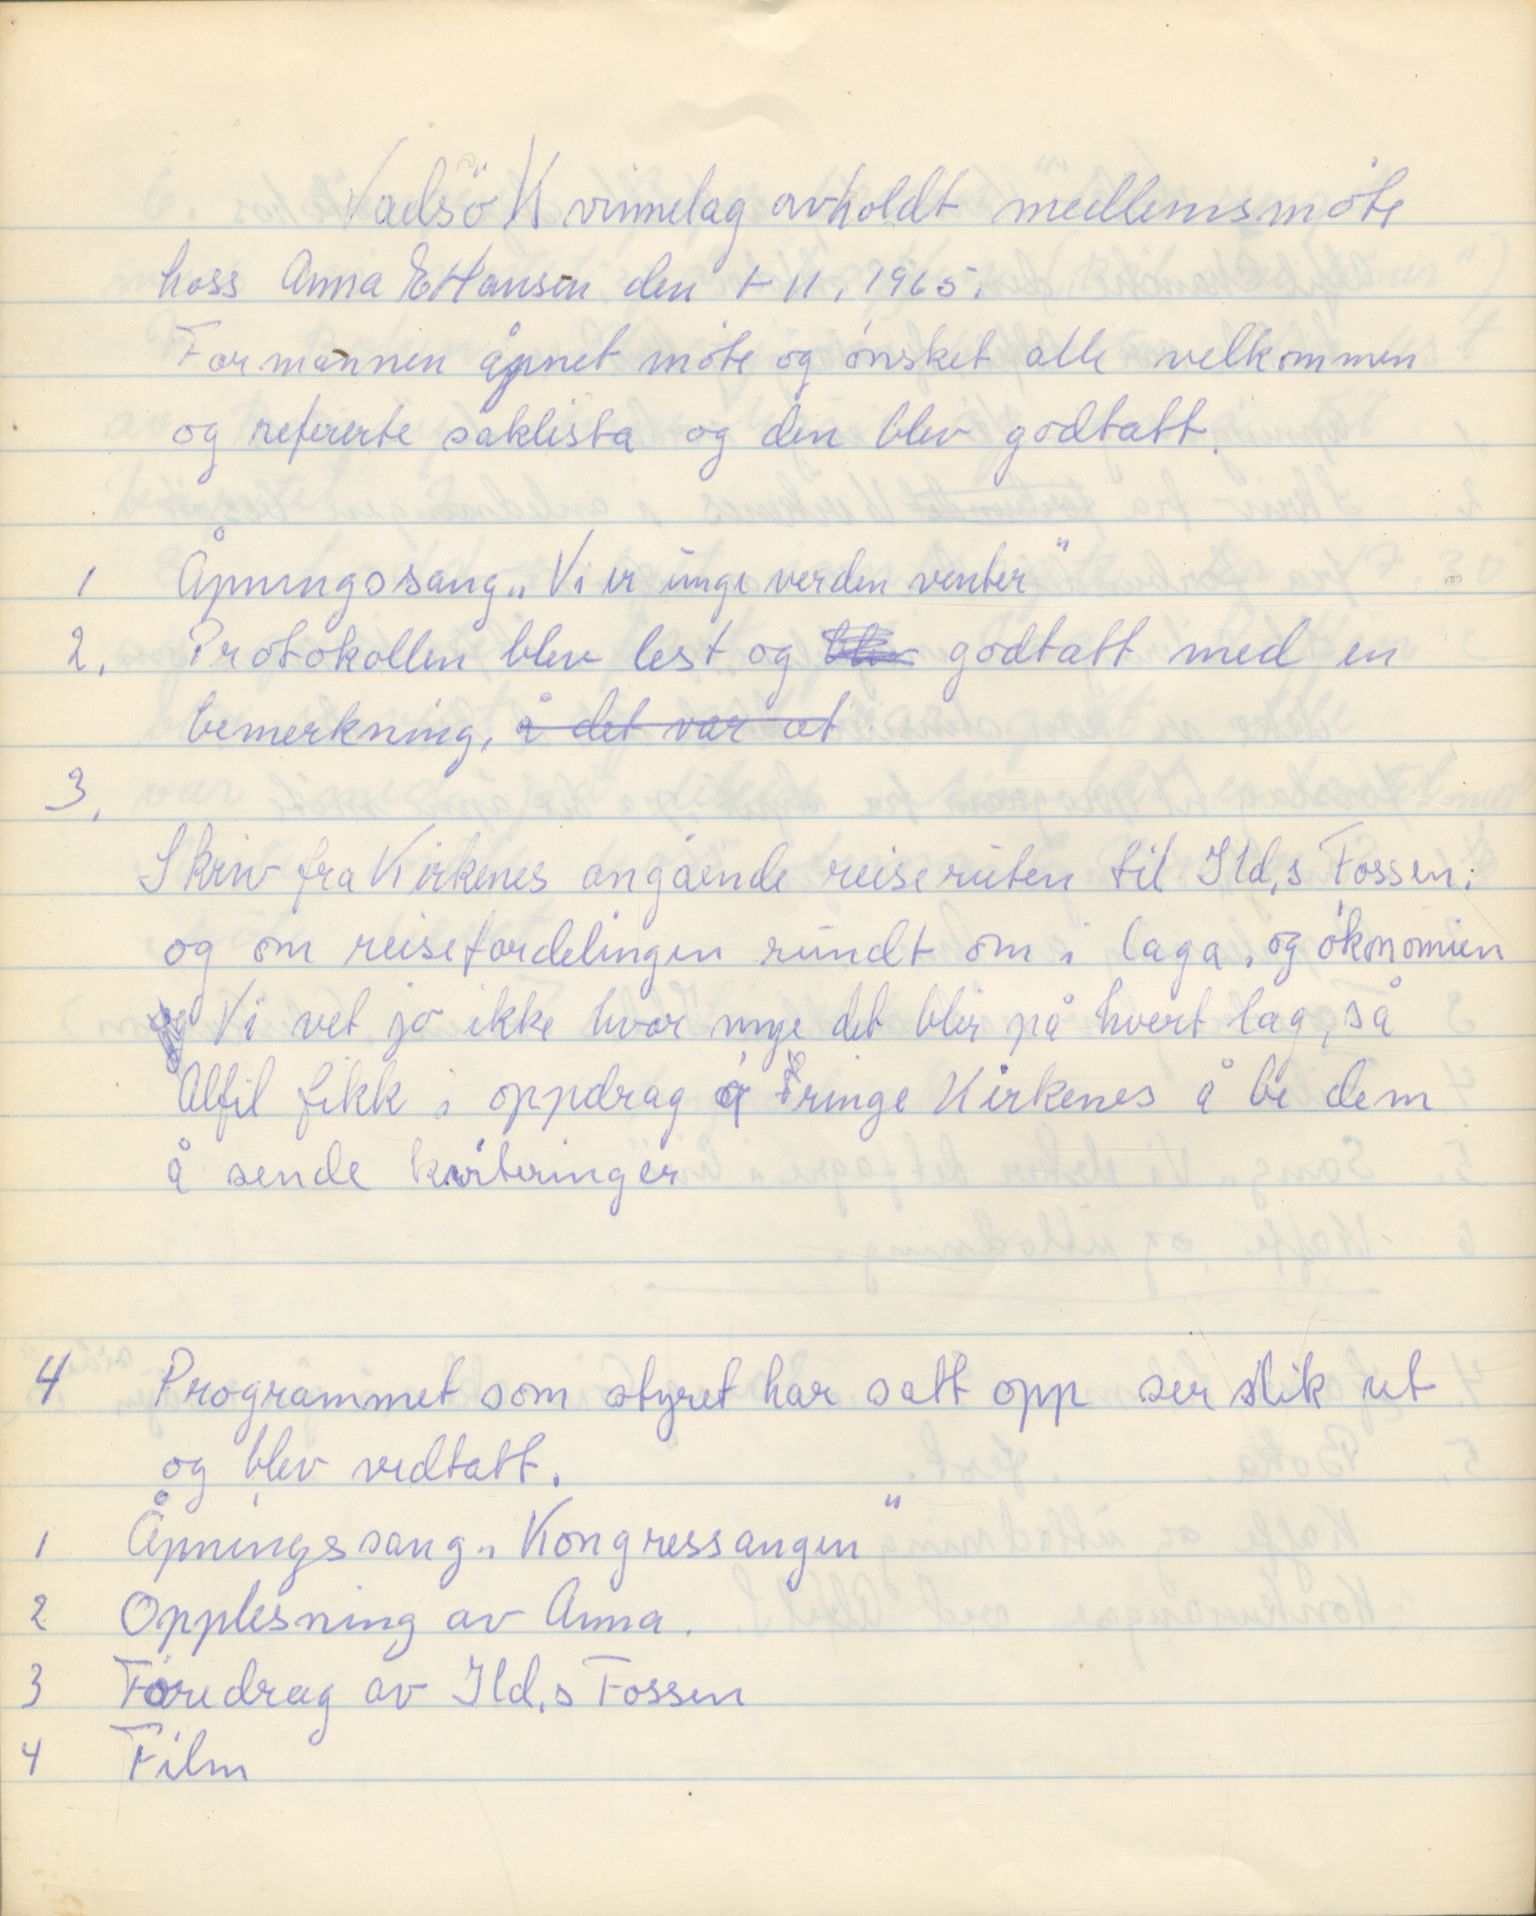 Vadsö Kvinnelag avholdt medlemsmöte
hoss Anna E Hansen den 1-11, 1965.
Formannen åpnet möte og önsket alle velkommen
og refererte saklista og den blev godtatt.
1 Åpningssang „Vi er unge verden venter"
2. Protokollen blev lest og blev godtatt med en
bemerkning, å det var at
3.
Skriv fra Kirkenes angående reiseruten til Ild,s Fossen;
og om reisefordelingen rundt om i laga, og ökonomien
Vi vet jo ikke hvor mye det blir på hvert lag, så
Alfil fikk i oppdrag å ringe Kirkenes å be dem
å sende kviteringer
4 Programmet som styret har satt opp ser slik ut
og blev vedtatt.
1 Åpningssang „Kongressangen"
2 Opplesning av Anna.
3 Foredrag av Ild,s Fossen
4 Film